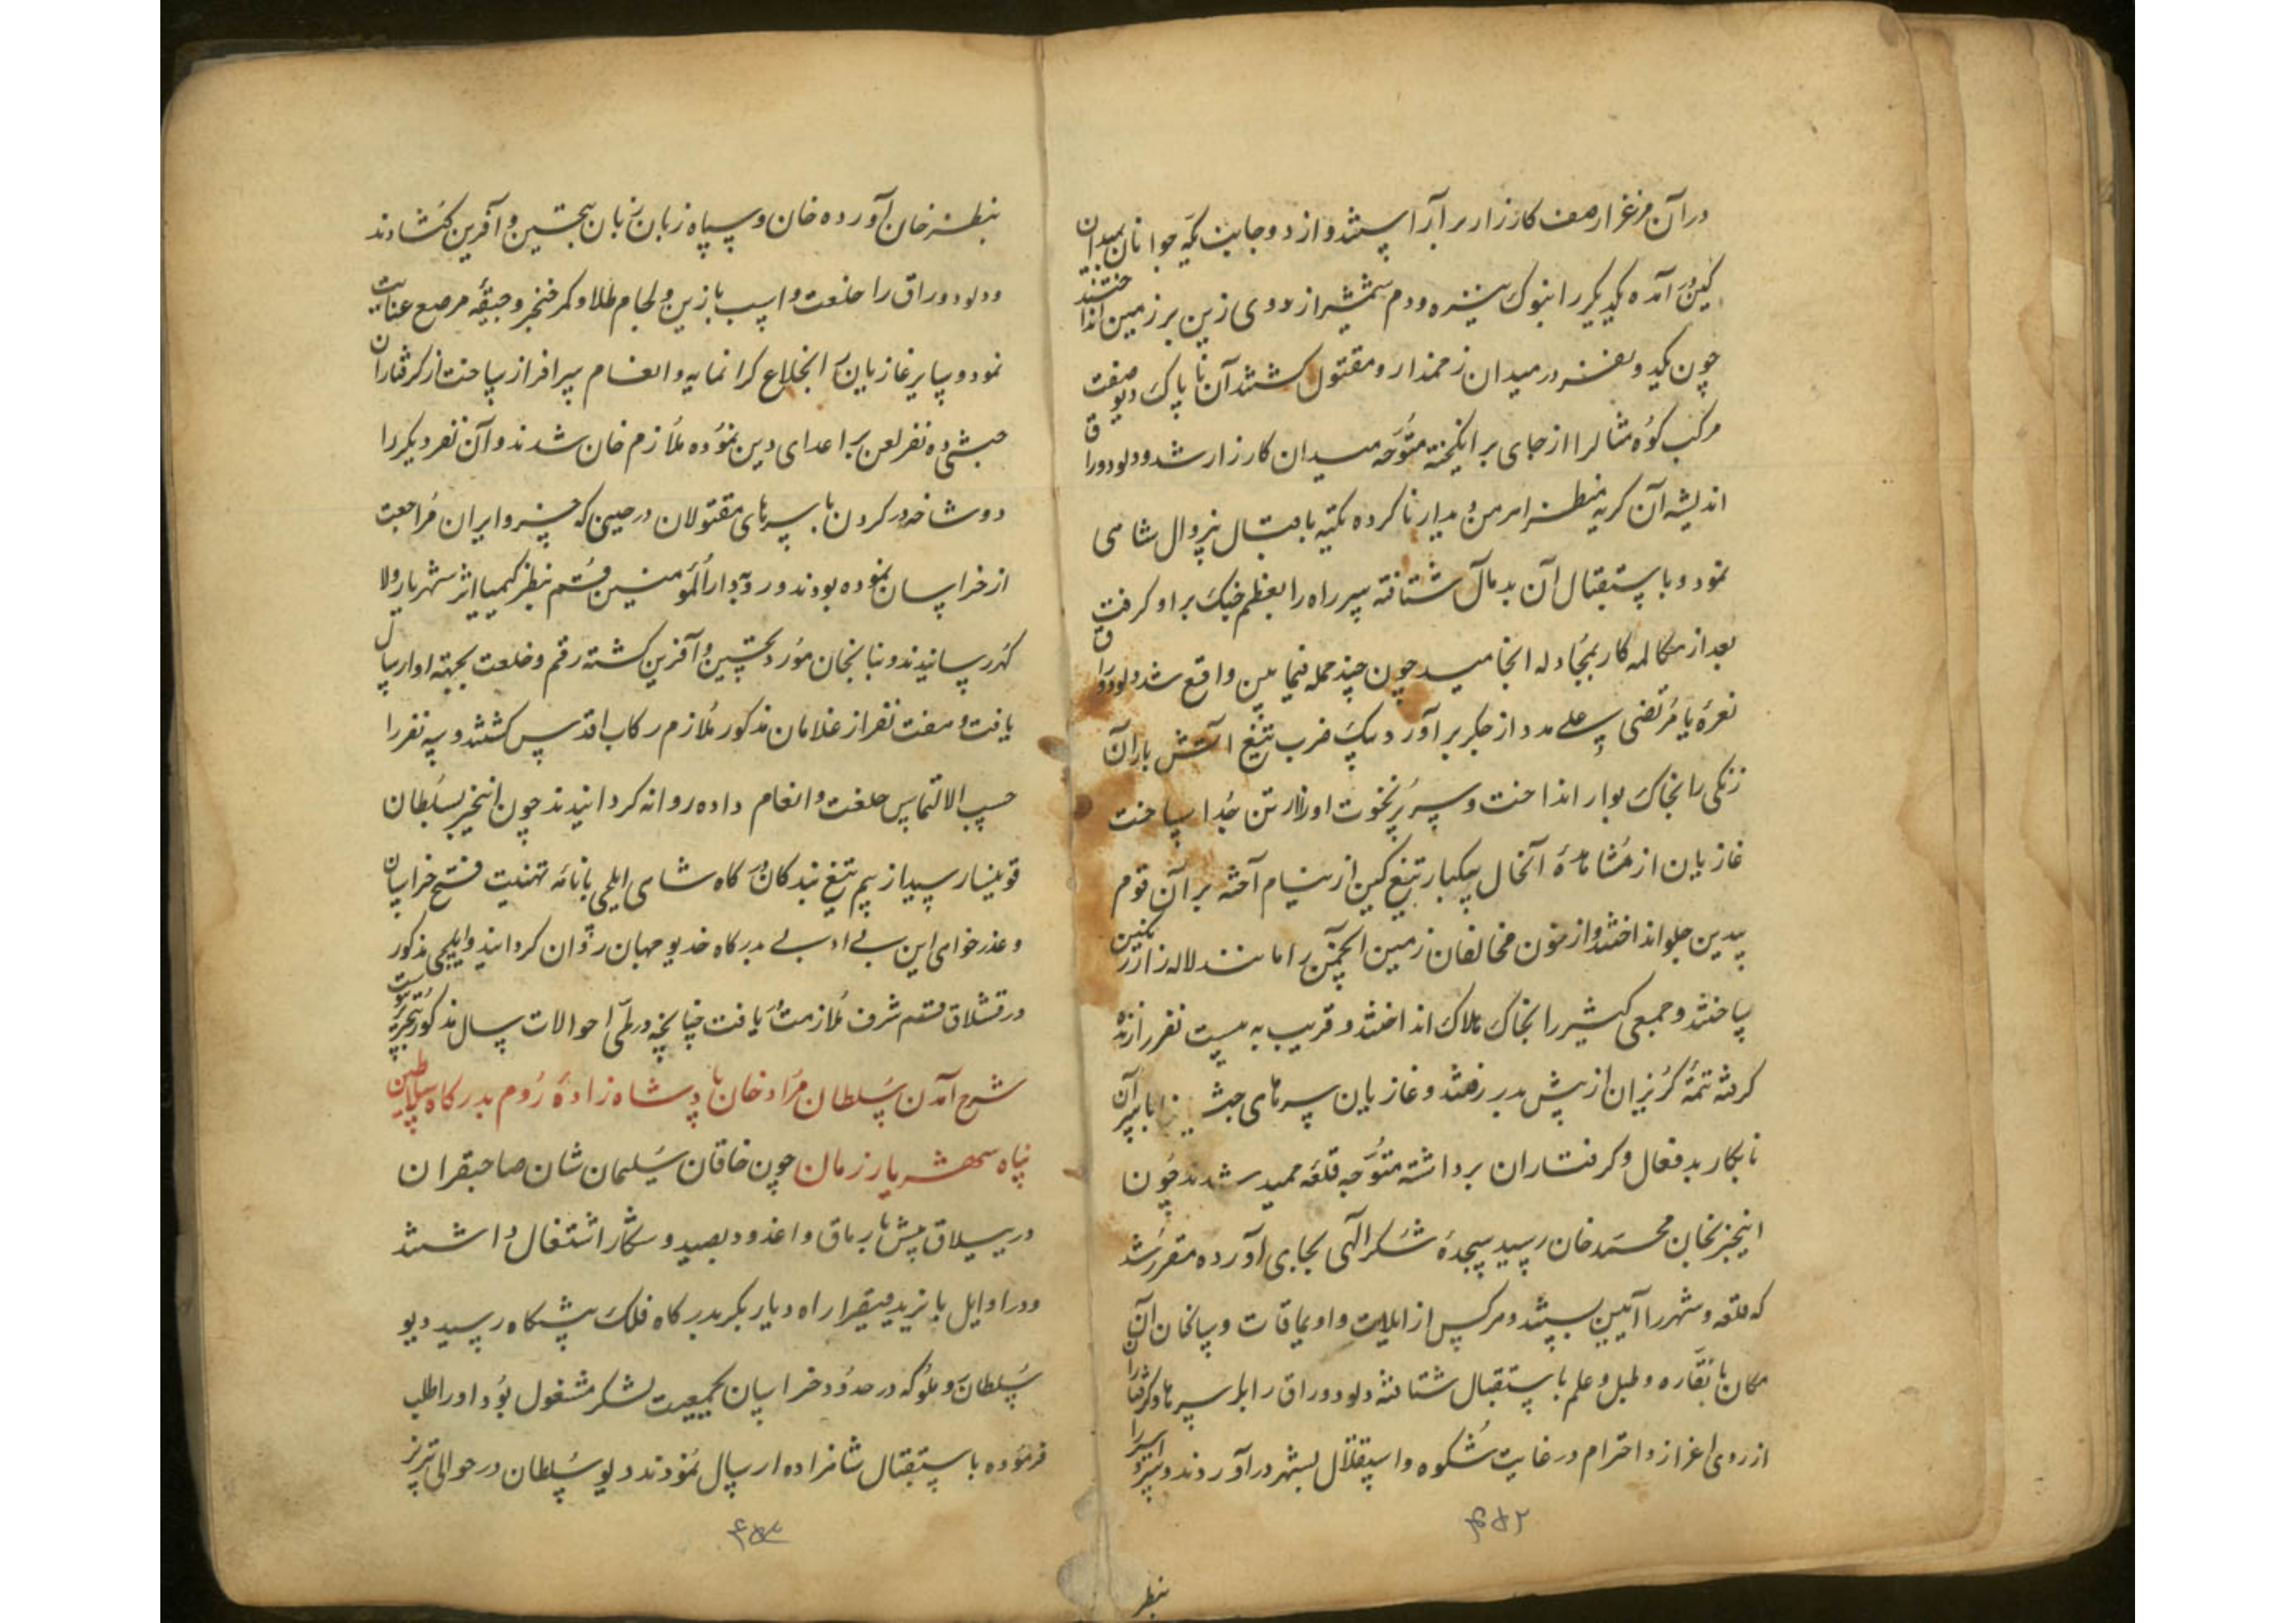 در آن مرغزار صف کارزار برآراستند و از دو جانب یکه جوانان بمیدان
کین آمده یکدیگر را بنوک نیزه و دم شمشیر از روی زین بر زمین انداختند
چون یکدو نفر در میدان زخمدار و مقتول کشتند آن ناپاک دیو صفت
مرکب کوه مثالرا از جای برانکیخته متوجه میدان کارزار شد و دلودوراق
اندیشه آن کریه منظر اهرمن دیدار ناکرده تکیه باقبال بیزوال شاهی
نمود و باستقبال آن بدمآل شتافته سر راه را بعظم جنک بر او کرفت
بعد از مکالمه کار بمجادله انجامید چون چند حمله فیمابین واقع شد دلودوراق
نعره یا مرتضی علی مدد از جکر برآورد و بیک ضرب تیغ آتش بار آن
زنکی را بخاک بوار انداخت و سر پرنخوت او را از تن جدا ساخت
غازیان از مشاهده آنحال بیکبار تیغ کین از نیام آخته بر آن قوم
بیدین جلو انداختند و از خون مخالفان زمین انجمن را مانند لاله زار رنکین
ساختند و جمعی کثیر را بخاک هلاک انداختند و قریب به بیست نفر را زنده
کرفته تتمه کریزان از پیش بدر رفتند و غازیان سرهای حبشی را با سر آن
نابکار بدفعال و کرفتاران برداشته متوجه قلعه شدند چون
اینخبر بخان محمد خان رسید سجده شکر الهی بجای آورده مقرر شد
که قلعه و شهر را آیین بستند و هرکس از ایلات و اویماقات و ساکنان آن
مکان با نقاره و طبل و علم باستقبال شتافته دلودوراق را با سرها و کرفتاران
از روی اعزاز و احترام در غایت شکوه و استقلال بشهر درآوردند و
۴۵۲
بنظر
بنظر خان آورده خان و سپاه زبان زبان بتحسین و آفرین کشادند
و دلودوراق را خلعت و اسب با زین و لجام طلا و کمر خنجر و جیقه مرصع عنایت
نمود و سایر غازیان با خلاع کرانمایه و انعام سرافراز ساخت از کرفتاران
حبشی ده نفر لعن بر اعدای دین نموده ملازم خان شدند و آن نفر دیکر را
دو شاخه در کردن با سرهای مقتولان در حینی که خسرو ایران مراجعت
از خراسان نموده بودند در دارالمومنین قم بنظر کیمیا اثر شهریار والا
کهر رسانیدند و بنا بخان مورد تحسین و آفرین کشته رقم و خلعت بجهته او ارسال
یافت و هفت نفر از غلامان مذکور ملازم رکاب اقدس کشتند و سه نفر را
حسب الالتماس خلعت و انعام داده روانه کردانیدند چون اینخبر بسلطان
رسید از بیم تیغ بندکان درکاه شاهی ایلچی با نامه تهنیت فتح خراسان
و عذرخواهی این بی ادبی بدرکاه خدیو جهان روان کردانید و ایلچی مذکور
در قشلاق قم شرف ملازمت یافت چنانچه در طی احوالات سال مذکور بتحریر پیوست
شرح آمدن سلطان مراد خان پادشاه زاده روم بدرکاه سلاطین
پناه شهریار زمان چون خاقان سلیمان شان صاحبقران
در ییلاق بیش برماق واغدود بصید و شکار اشتغال داشتند
و در اوایل پاییز میرزا راه دیار بکر بدرکاه فلک پیشکاه رسید دیو
سلطان روملو که در حدود خراسان بجمعیت لشکر مشغول بود او را طلب
فرموده باستقبال شاهزاده ارسال نمودند دیو سلطان در حوالی تبریز
۴۵۳